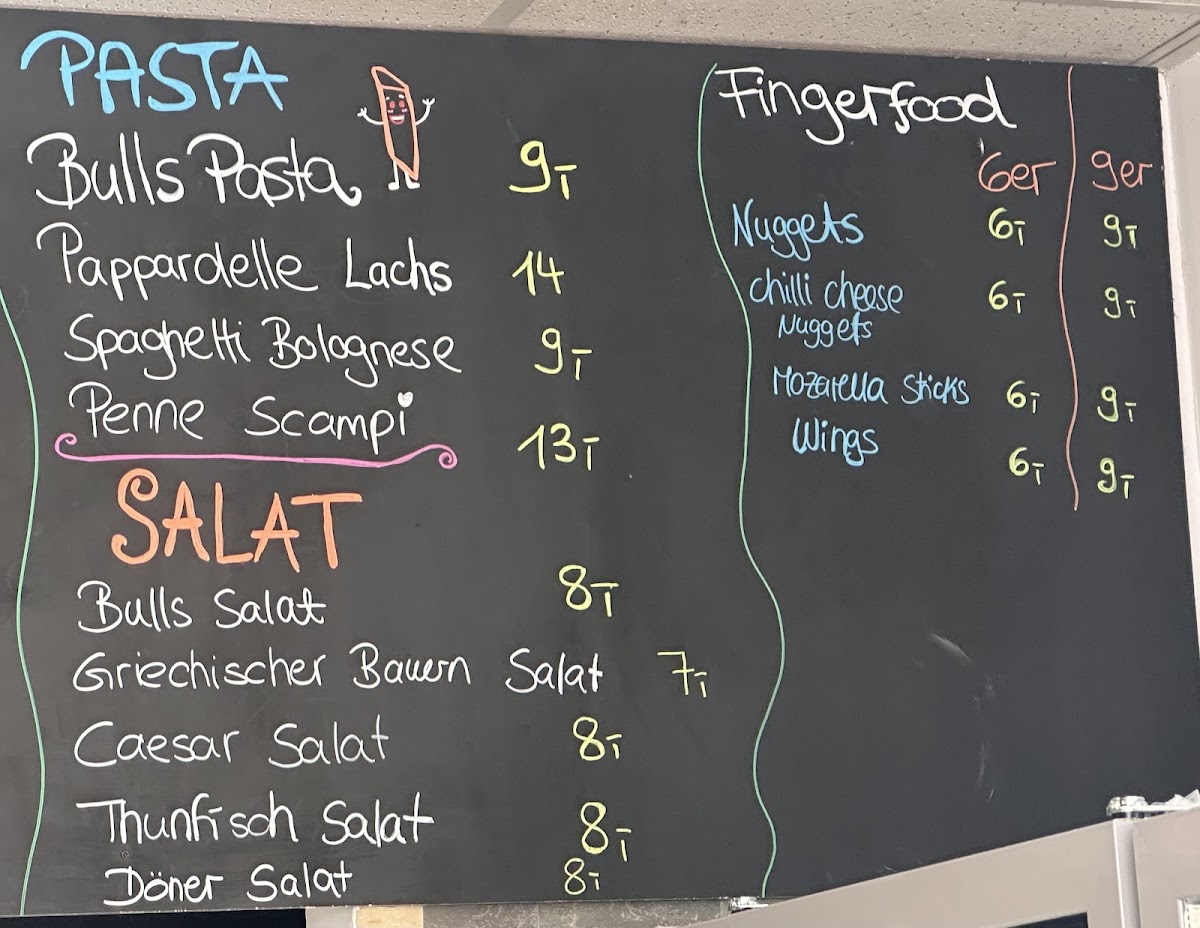 PASTA
Bulls Pasta 9,-
Pappardelle Lachs 14
Spaghetti Bolognese 9,-
Penne Scampi 13,-
SALAT
Bulls Salat 8,-
Griechischer Bauern Salat 7,-
Caesar Salat 8,-
Thunfisch Salat 8,-
Döner Salat 8,-
Fingerfood
6er 9er
Nuggets 6,- 9,-
chilli cheese 6,- 9,-
Nuggets
Mozarella Sticks 6,- 9,-
Wings 6,- 9,-